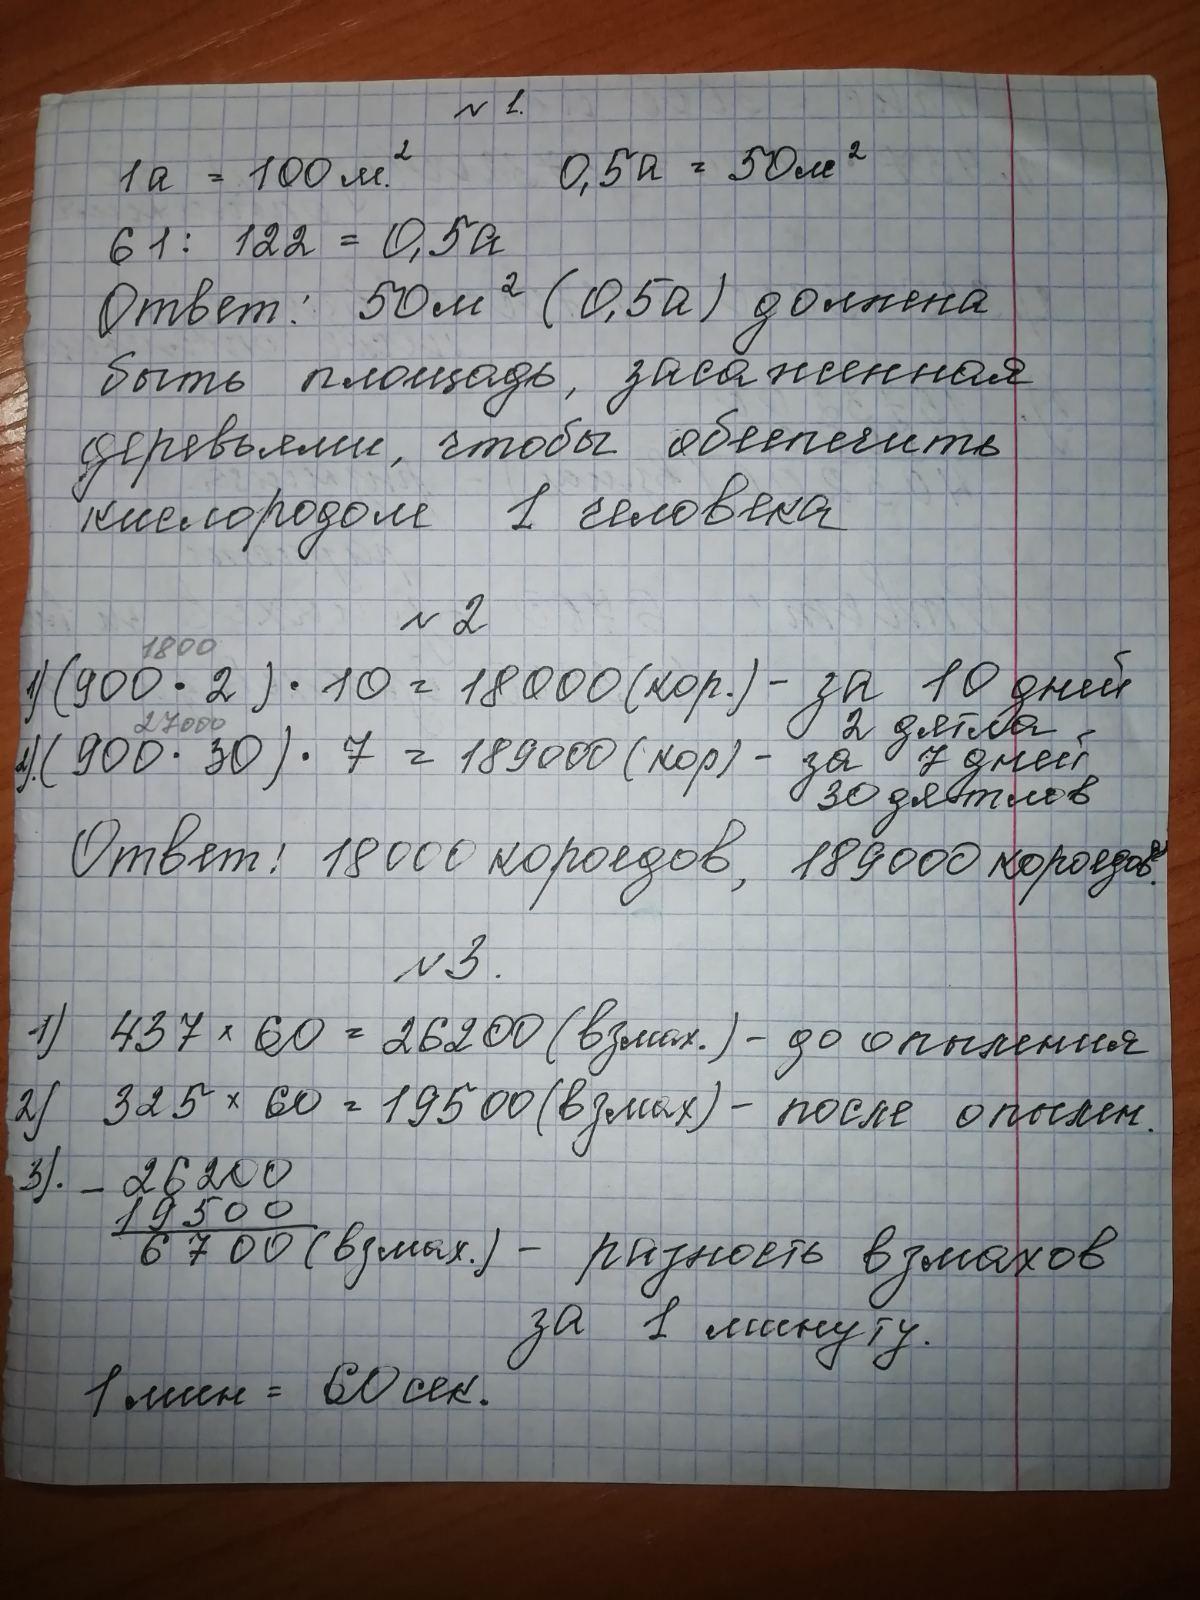 № 1.
1а = 100 м.² 0,5а = 50м²
61 : 122 = 0,5а
Ответ: 50м² (0,5а) должна
быть площадь, засаженная
деревьями, чтобы обеспечить
кислородом 1 человека
№ 2
1800
1) (900 · 2) · 10 = 18000 (кор.) - за 10 дней
2 дятла
27000
2). (900 · 30) · 7 = 189000 (кор) - за 7 дней
30 дятлов
Ответ: 18000 короедов, 189000 короедов.
№ 3.
1) 437 × 60 = 26200 (взмах.) - до опыления
2) 325 × 60 = 19500 (взмах) - после опылен.
3). - 26200
19500
6700 (взмах.) - разность взмахов
за 1 минуту.
1 мин = 60 сек.